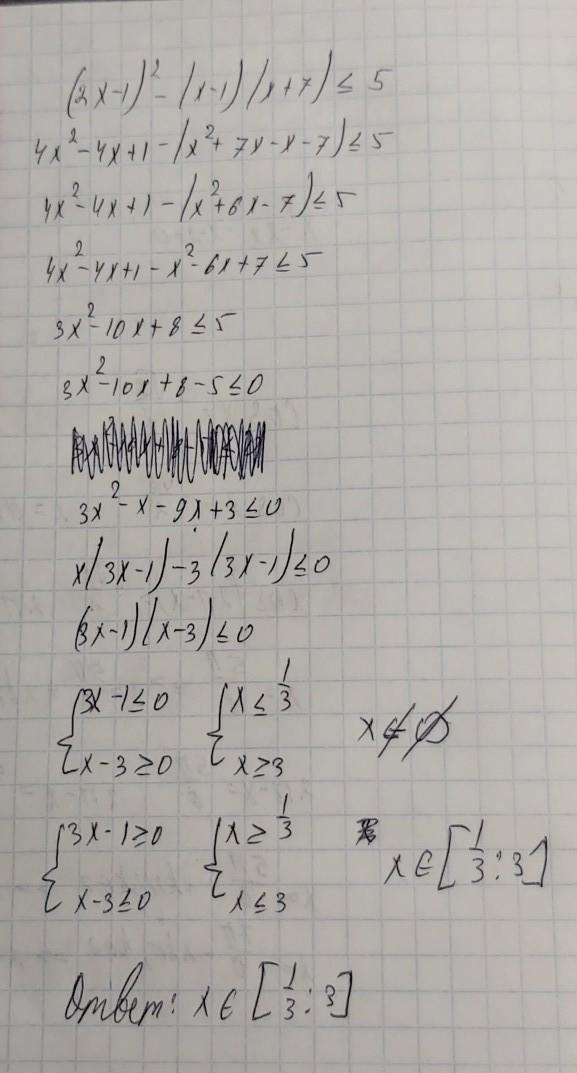 (2x-1)² - (x-1)(x+7) ≤ 5
4x² - 4x + 1 - (x² + 7x - x - 7) ≤ 5
4x² - 4x + 1 - (x² + 6x - 7) ≤ 5
4x² - 4x + 1 - x² - 6x + 7 ≤ 5
3x² - 10x + 8 ≤ 5
3x² - 10x + 8 - 5 ≤ 0
3x² - x - 9x + 3 ≤ 0
x(3x-1) - 3(3x-1) ≤ 0
(3x-1)(x-3) ≤ 0
{3x - 1 ≤ 0 {x ≤ 1/3 x ∉ ∅
{x - 3 ≥ 0 {x ≥ 3
{3x - 1 ≥ 0 {x ≥ 1/3 x ∈ [1/3 : 3]
{x - 3 ≤ 0 {x ≤ 3
Ответ: x ∈ [1/3 : 3]